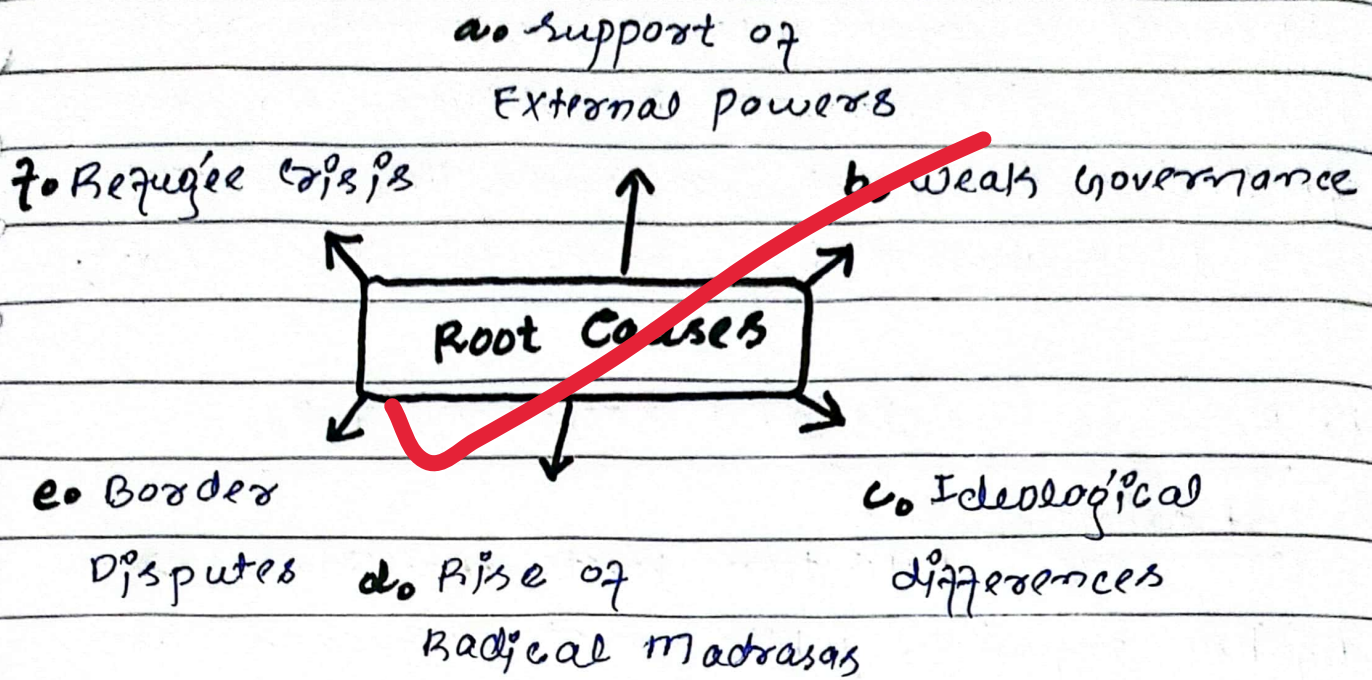 a. Support of
External Powers
f. Refugee Crisis
b. Weak Governance
Root Causes
e. Border
Disputes
c. Ideological
differences
d. Rise of
Radical Madrasas